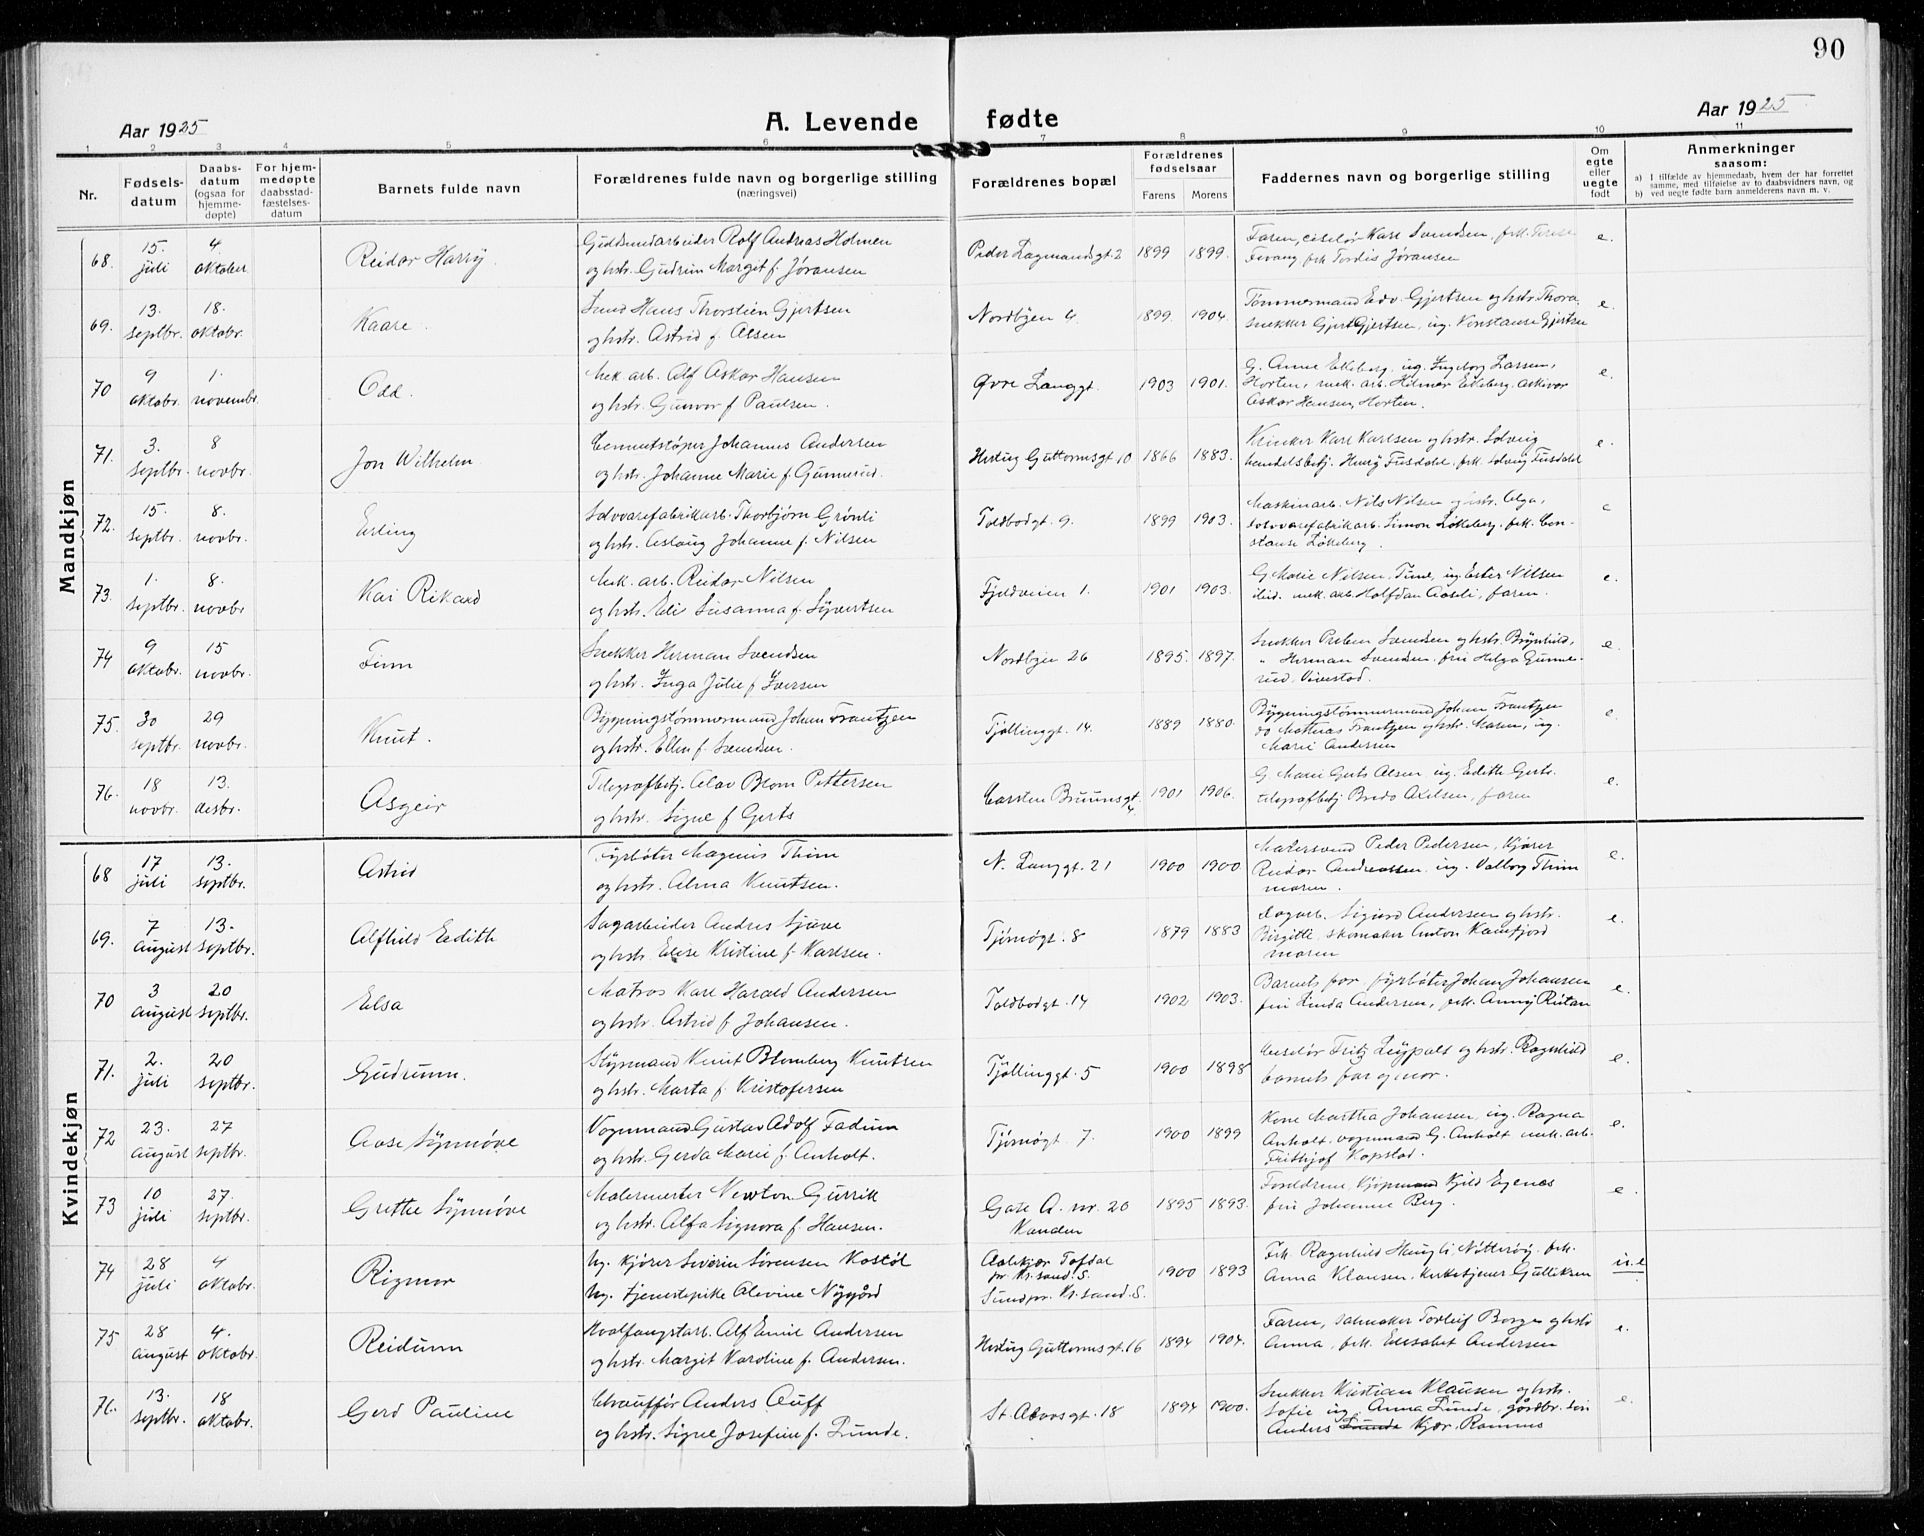 90
Aar 1925
A. Levende fødte
Aar 1925
1 2 3 4 5 6 7 8 9 10 11
Nr.
Fødsels-
datum
Daabs-
datum
(ogsaa for
hjemme-
døpte)
For hjem-
medøpte
daabsstad-
fæstelses-
datum
Barnets fulde navn
Forældrenes fulde navn og borgerlige stilling
(næringsvei)
Forældrenes bopæl
Forældrenes
fødselsaar
Farens Morens
Faddernes navn og borgerlige stilling
Om
egte
eller
uegte
født
Anmerkninger
saasom:
a) I tilfælde av hjemmedaab, hvem der har forrettet
samme, med tilføielse av to daabsvidners navn, og
b) ved uegte fødte barn anmelderens navn m. v.
Mandkjøn
68. 15. juli 4. oktober Reidar Harry
Guldsmedarbeider Rolf Andreas Holmen
og hstr. Gudrun Margit f. Jøransen
Peder Lagmandsgt 2 1899 1899.
Faren, ciselør Karl Svendsen, frk.
Fevang frk Tordis Jøransen
e.
69. 13. septbr. 18. oktobr. Kaare.
Hans Thorstein Gjertsen
og hstr. Astrid f. Olsen
Nordbyen 4. 1899. 1904.
Tømmermand Edv. Gjertsen og hstr Thora,
snekker Gjert Gjertsen, ug. Konstanse Gjertsen
e.
70 9 oktobr. 1. novembr. Odd.
Mek. arb. Alf Oskar Hansen
og hstr. Gunvor f Paulsen.
Øvre Langgt. 1903 1901.
G. Anne Ekeberg, ug. Ingeborg Larsen,
Horten, mek. arb. Hilmar Ekeberg,
Oskar Hansen, Horten.
e.
71. 3. septbr. 8 novbr. Jon Wilhelm
Cementstøper Johannes Andersen
og hstr. Johanne Marie f. Gunnerud.
Hertug Guttormsgt 10 1866 1883.
Karl Karlsen og hstr. Solveig
handelsbetj. Henry Fusdahl, frk. Solveig Fusdahl
e.
72. 15. septbr. 8. novbr. Erling
Sølvvarefabrikarb. Thorbjørn Grønli
og hstr. Aslaug Johanne f. Nilsen
Toldbodgt. 9. 1899 1903.
Maskinarb. Nils Nilsen og hstr. Olga,
sølvvarefabrikarb. Simon Løkeberg, frk. Con-
stanse Løkeberg.
e
73. 1. septbr. 8. novbr Kai Rikard
Mek. arb. Reidar Nilsen
og hstr. Susanna f. Syvertsen
Fjeldveien 1. 1901 1903.
G Marie Nilsen, Time, ug Ester Nilsen
ibid. mek. arb Halfdan Aaseli, faren.
e.
74 9 oktobr. 15 novbr. Finn
Snekker Herman Svendsen
og hstr. Inga Julie f Iversen
Nordbyen 26 1895. 1897.
Snekker Preben Svendsen og hstr. Brynhild,
" Herman Svendsen, frui Helga Gunne-
rud, Vivestad.
e.
75. 30 septbr. 29 novbr. Knut.
Bygningstømmermand Johan Frantzen
og hstr. Ellen f. Svendsen.
Tjøllinggt. 14. 1889 1880.
Bygningstømmermand Johan Frantzen
do Mathias Frantzen og hstr. Maren, ug.
Marie Andersen
e.
76. 18 novbr. 13. desbr. Asgeir
Telegrafbetj. Olav Blom Pettersen
og hstr. Signe f Gerts
Carsten Bruunsgt. 4. 1901 1906.
G. Marie Gerts Olsen, ug. Edith Gerts.
telegrafbetj Bredo Axelsen, faren
e.
Kvindekjøn
68 17 juli 13. septbr. Astrid
Fyrbøter Magnus Thim
og hstr. Alma Knutsen.
N. Langgt. 21 1900 1900.
Malersvend Peder Pedersen, kjører
Reidar Andreassen, ug. Valborg Thim
moren.
e.
69. 7 august 13. septbr. Alfhild Edith
Sagarbeider Andres Sjuve
og hstr. Elise Kristine f. Karlsen.
Tjømøgt. 8 1879 1883
Sagarb. Sigurd Andersen og hstr.
Birgitte, skomaker Anton
moren
e.
70 3 august 20 septbr. Elsa
Matros Karl Harald Andersen
og hstr. Astrid f Johansen.
Toldbodgt. 14 1902 1903.
Barnets far, fyrbøter Johan Johansen
frui Linda Andersen, frk. Anny
e.
71. 2. juli 20 septbr. Gudrunn.
Styrmand Knut Blomberg Knutsen
og hstr. Marta f. Kristofersen
Tjøllinggt. 5 1900 1898
Ciselør Fritz Leypolt og hstr. Ragnhild
barnets far og mor.
e.
72 23. august 27 septbr. Aase Synnøve
Vognmand Gustav Adolf Fadum
og hstr. Gerda Marie f. Anholt.
Tjømøgt. 7. 1900 1899
Kone Martha Johansen, ug. Ragna
Anholt, vognmand G. Anholt mek. arb.
Frithjof Kopstad.
e.
73 10 juli 27. septbr. Grethe Synnøve
Malermester Newton Gurrik
og hstr. Alfa Signora f. Hansen.
Gate A. nr. 20
Kanalen
1895 1893.
Foreldrene, kjøpmand Kjeld Egenes
frui Johanne Berg.
e.
74 28 juli 4 oktobr. Rigmor
Ug. kjører Severin Sørensen Kostøl
Ug. tjenestepike Alevine Nygård
Tofdal
pr. Kr.sand. S.
Sund pr. Kr.sand S.
1900 1893
Frk. Ragnhild Haugli, Nøtterøy, frk.
Anna Klausen, kirketjener Gulliksen
u.e.
75 28 august 4. oktobr. Reidunn
Hvalfangstarb. Alf Emil Andersen
og hstr. Margit Karoline f. Andersen.
Hertug Guttormsgt. 16 1894 1904.
Faren, salmaker Torleif Borge og hstr
Anna, frk. Elisabet Andersen
e.
76. 13. septbr 18 oktobr. Gerd Pauline
Chauffør Anders Auff
og hstr. Signe Josefine f. Lunde.
St. Olavsgt. 18 1894 1900.
Snekker Kristian Klausen og hstr.
Sofie ug. Anna Lunde, gårdbr. søn
Anders Lunde Kjær. Ramnes
e.